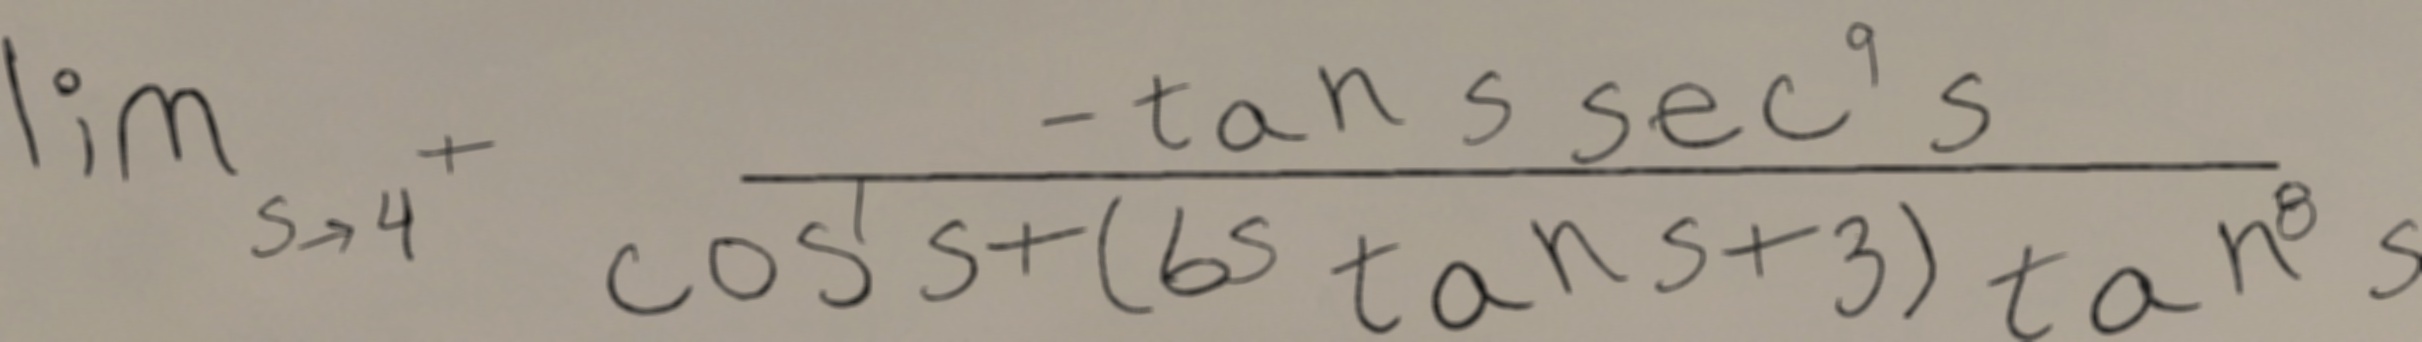 \lim_{s \to 4^+} \frac{-\tan s \sec^9 s}{\cos^1 s + (6s \tan s + 3) \tan^8 s}